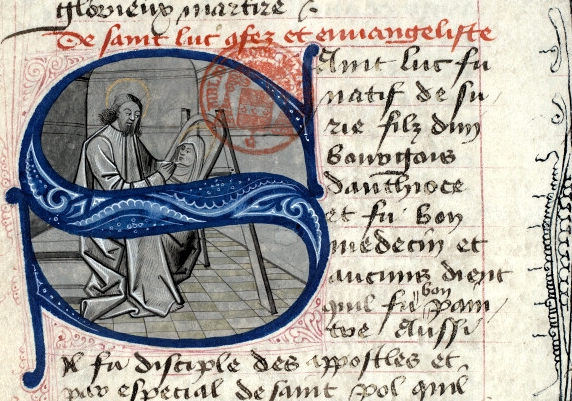 glorieux martire
De saint luc gfez et euuangeliste
Saint luc fu
natif de su
rie filz dun
bourgois
danthioce
et fu bon
medecin et
aucuns dient
quil fu bon pain
tre Aussi
Il fu disciple des appostles et
par especial de saint pol quil